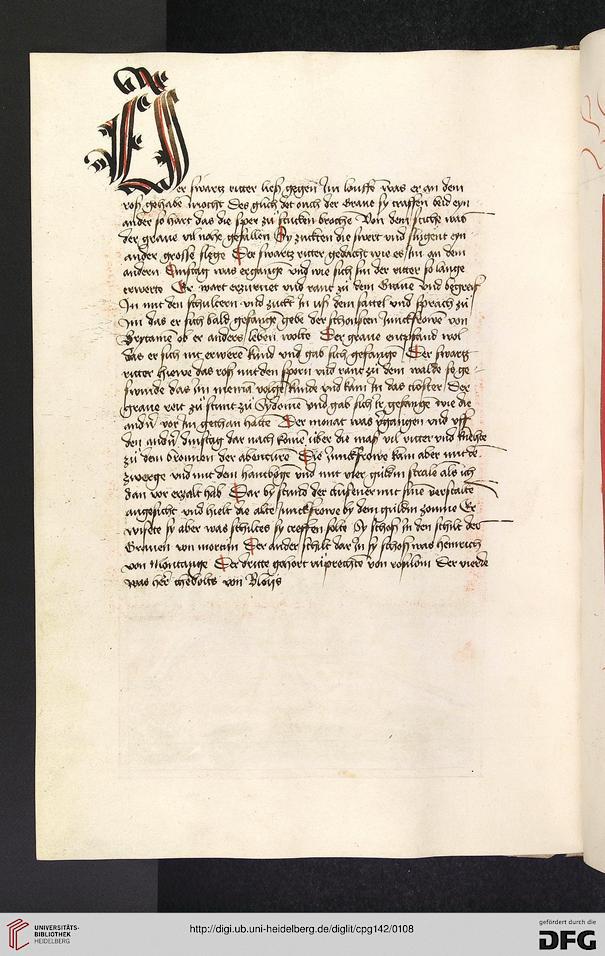 Der swartz ritter ließ gegen Im louffē was er an dem
roß gehabē mocht Des glich det ouch der Graue sy traffen beid eyn
ander so hart das die sper zü stucken broche Von dem stiche was
der graue vil nahe gefallen Sy zuckten die swert vnd slugent eyn
ander grosse slege Der swartz ritter gedacht wie er Im an dem
andern dinstag was ergangē vnd wie sich sin der ritter so lange
erwerte Er wart erzurnet vnd rant zü dem Grauē vnd begreif
In mit den schultern vnd zuckt In vß dem sattel vnd sprach zü
Im das er sich bald gefangē gebe der schonsten Junckfrowē von
Brytanie ob er anders leben wolte Der graue entpfand wol
das er sich nit erwerē kund vnd gab sich gefangē Der swartz
ritter hiewe das roß mit den sporn vnd rant zü dem walde so ge-
swinde das Im niemā volgē kunde vnd kam In das closter Der
graue reit zü stunt zü Sydonien vnd gab sich ir gefangē wie die
andn̄ vor Im gethan hattē Der monat was v̄gangen vnd vff
den andn̄ dinstag dar nach komē über die maß vil ritter vnd knechte
zü dem bronnen der abentürē Die Junckfrowe kam aber mit de
zwerge vnd mit den hantbogē vnd mit vier guldin strale als ich
dan vor erzalt hab Dar by stund der clusener mit sinē verstalte
angesicht vnd hielt die alte Junckfrowe by dem guldin zoume Er
wisete sy aber was schiltes sy treffen solte Sy schoß in den schilt des
Grauen von mortin Der ander schilt dar In sy schoß was heinrich
von Montange Der dritte gehort rüprechte von roßlom Der vierde
was her thebolts von Bloys
UNIVERSITÄTS-
BIBLIOTHEK
HEIDELBERG
http://digi.ub.uni-heidelberg.de/diglit/cpg142/0108
gefördert durch die
DFG